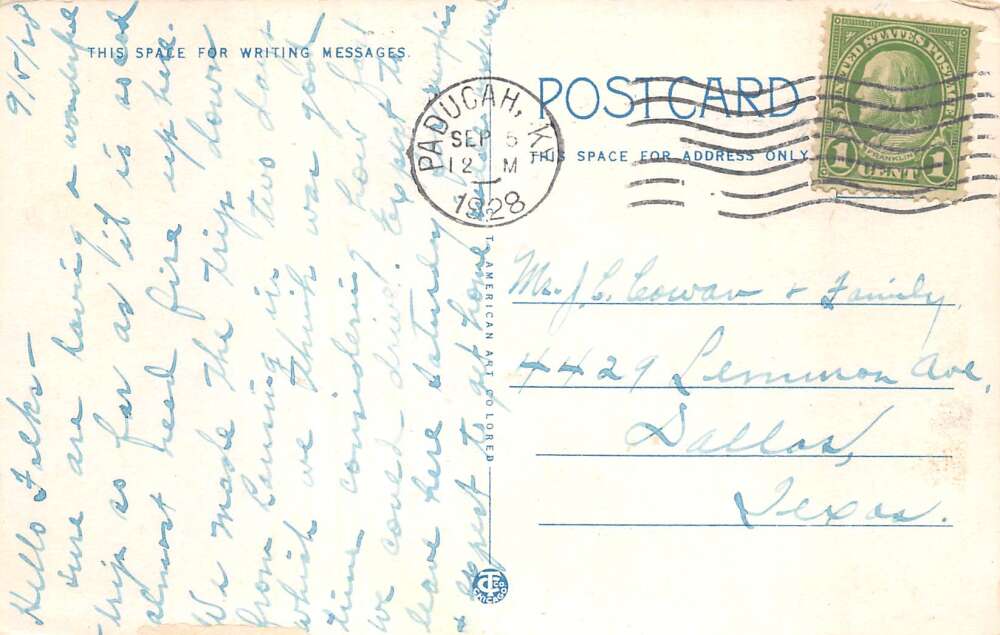 9/5/28
THIS SPACE FOR WRITING MESSAGES.
Hello Folks—
Sure are having a wonderful
trip so far as it is so cool
almost need fire up here.
We made the trip down
from Lansing in two days
which we think was good
time considering how fast
we could drive. Expect to
leave here saturday
& expect to get home
T. AMERICAN ART COLORED
CT CO. CHICAGO
POSTCARD
THIS SPACE FOR ADDRESS ONLY
PADUCAH, KY.
SEP 5
12 M
1928
UNITED STATES POSTAGE
FRANKLIN
1 CENT 1
Mr. J. C. Cowan & Family,
4429 Lemmon Ave,
Dallas,
Texas.